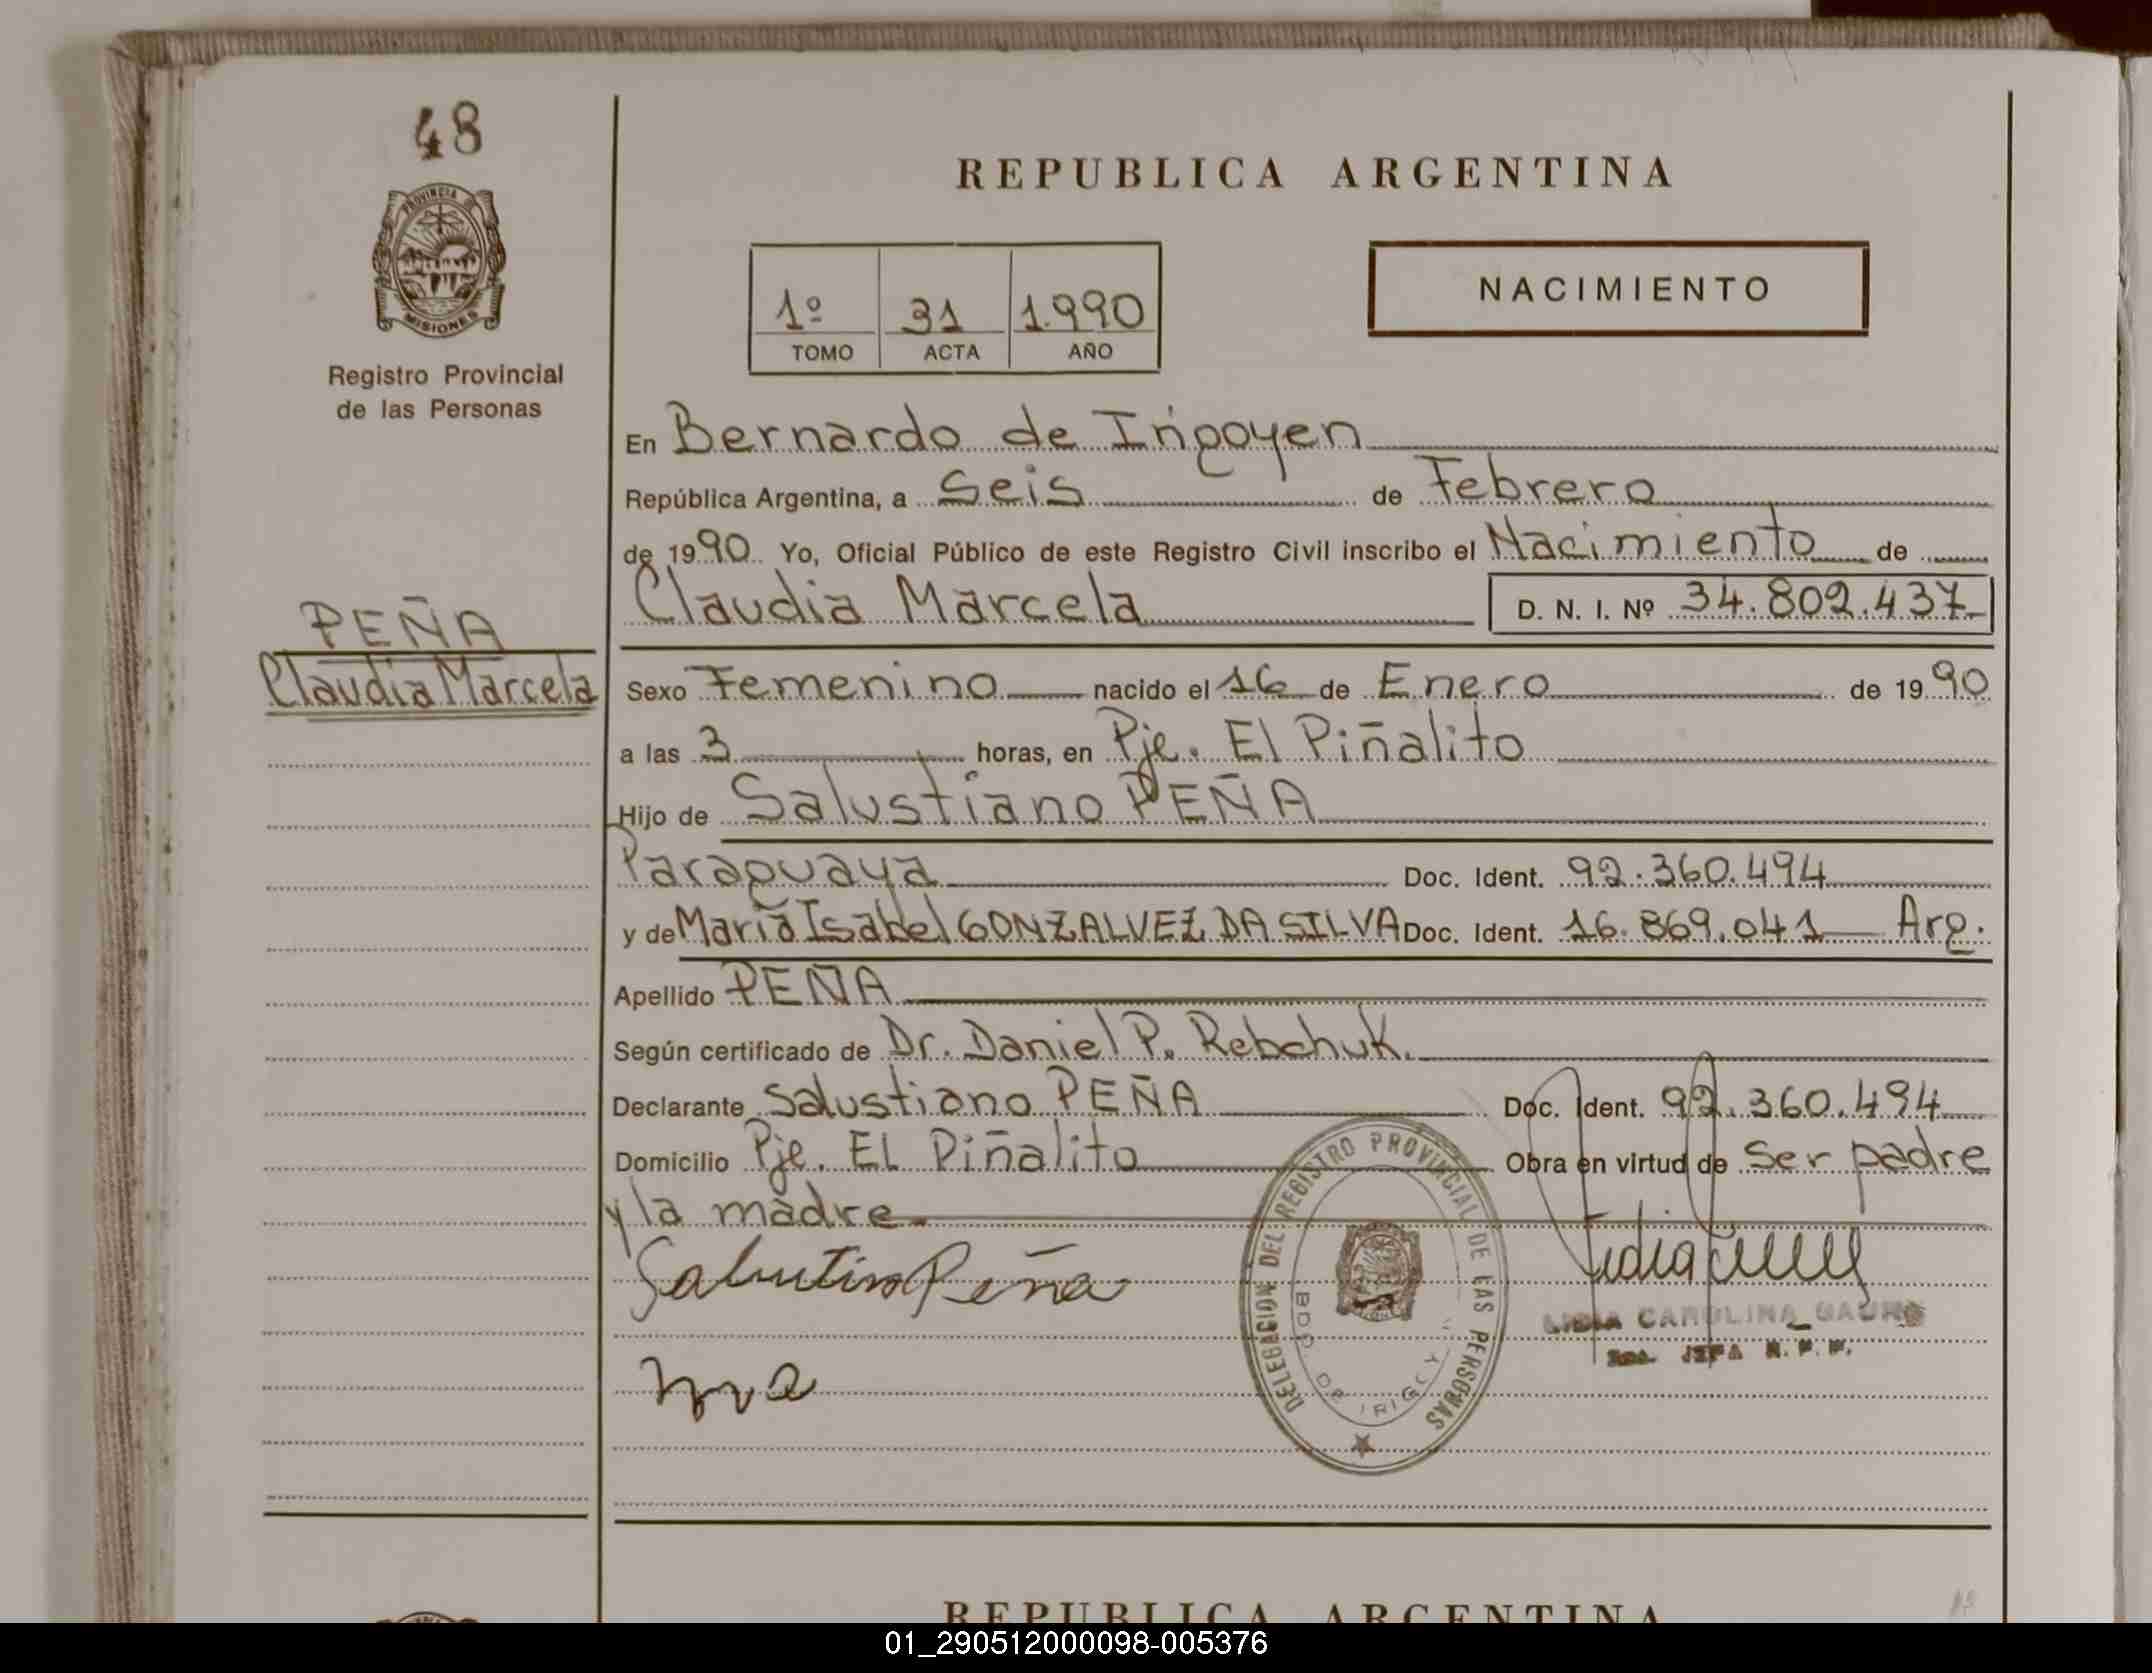 48
PROVINCIA
MISIONES
Registro Provincial
de las Personas
REPUBLICA ARGENTINA
1º 31 1.990
TOMO ACTA AÑO
NACIMIENTO
En Bernardo de Irigoyen
República Argentina, a Seis de Febrero
de 1990 Yo, Oficial Público de este Registro Civil inscribo el Nacimiento de
Claudia Marcela D. N. I. Nº 34.802.437
PEÑA
Claudia Marcela
Sexo Femenino nacido el 16 de Enero de 1990
a las 3 horas, en Pje. El Piñalito
Hijo de Salustiano PEÑA
Paraguaya Doc. Ident. 92.360.494
y de María Isabel GONZALVEZ DA SILVA Doc. Ident. 16.869.041 Arg.
Apellido PEÑA
Según certificado de Dr. Daniel P. Rebchuk.
Declarante Salustiano PEÑA Doc. Ident. 92.360.494
Domicilio Pje. El Piñalito Obra en virtud de Ser padre
y la madre.
Peña
DELEGACION DEL REGISTRO PROVINCIAL DE LAS PERSONAS
BDO. DE IRIGOYEN
LIDIA CAROLINA
JEFA R. P. P.
REPUBLICA ARGENTINA
01_290512000098-005376